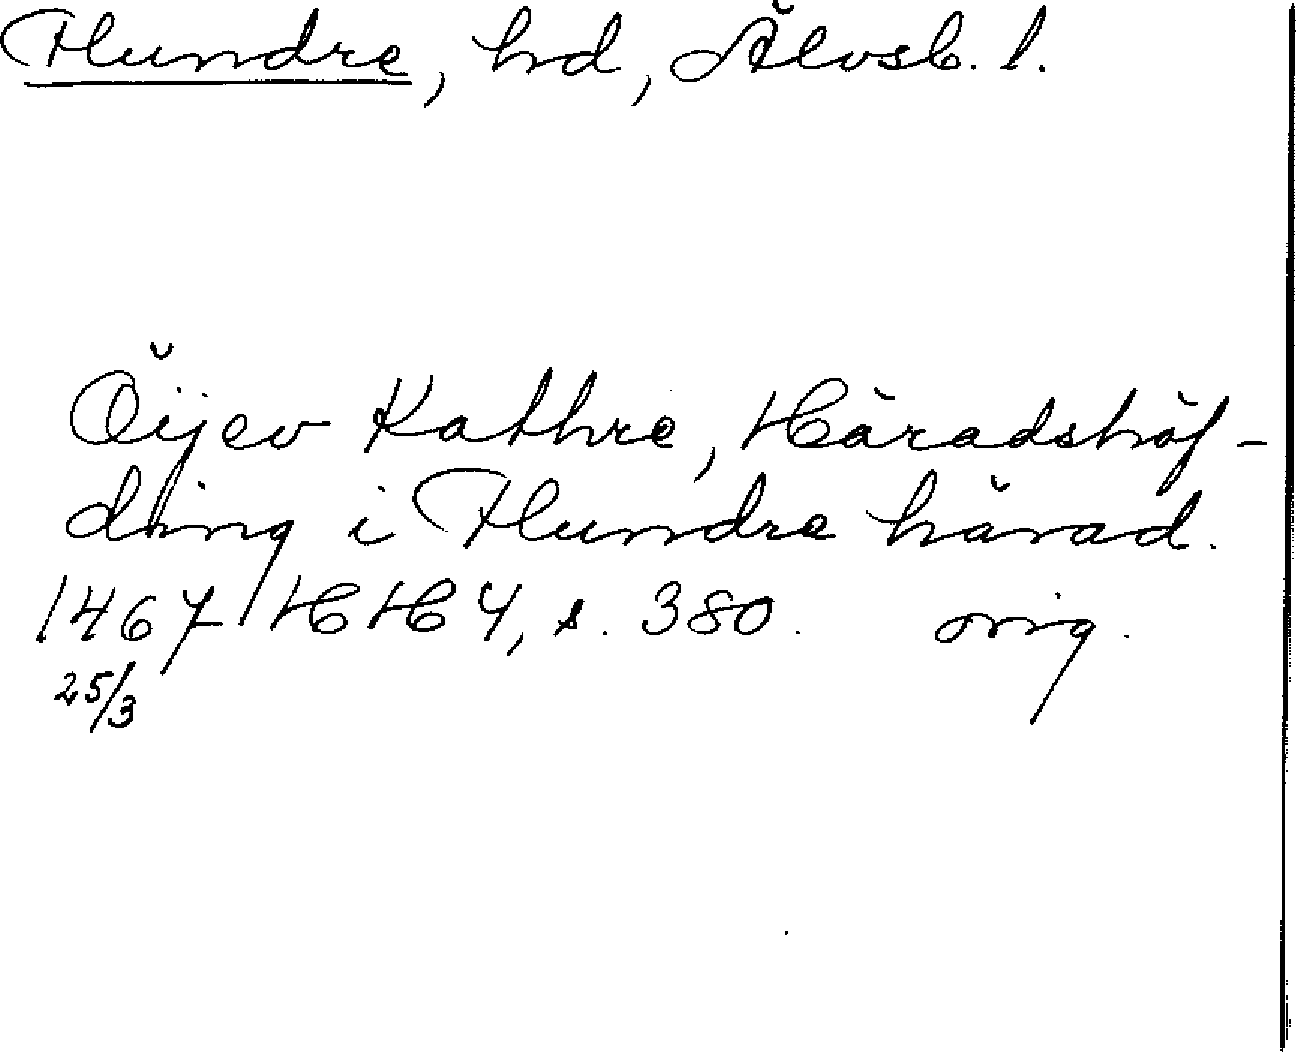 Flundre, hd, Älvsb. l.
Öijev Kathre, Häradshöf-
ding i Flundre härad.
1467 HH 4, s. 380. orig.
25/3